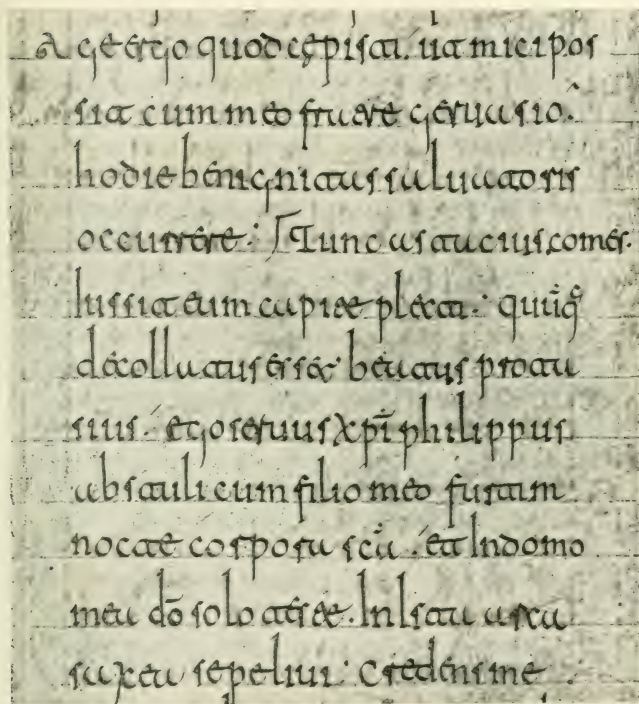 Age ergo quod cępisti. ut mici pos
sit cum meo fruere geruasio.
hodie benignitas saluatoris
occurrere. Tunc astacius comes.
Iussit eum capite plecti. quūq;
decollatus esset beatus prota
sius. ego seruus xp̄i philippus
abstuli cum filio meo furtim
nocte corpora scā. et In domo
mea dō solo teste. In Ista arca
saxea sepeliui. Credens me